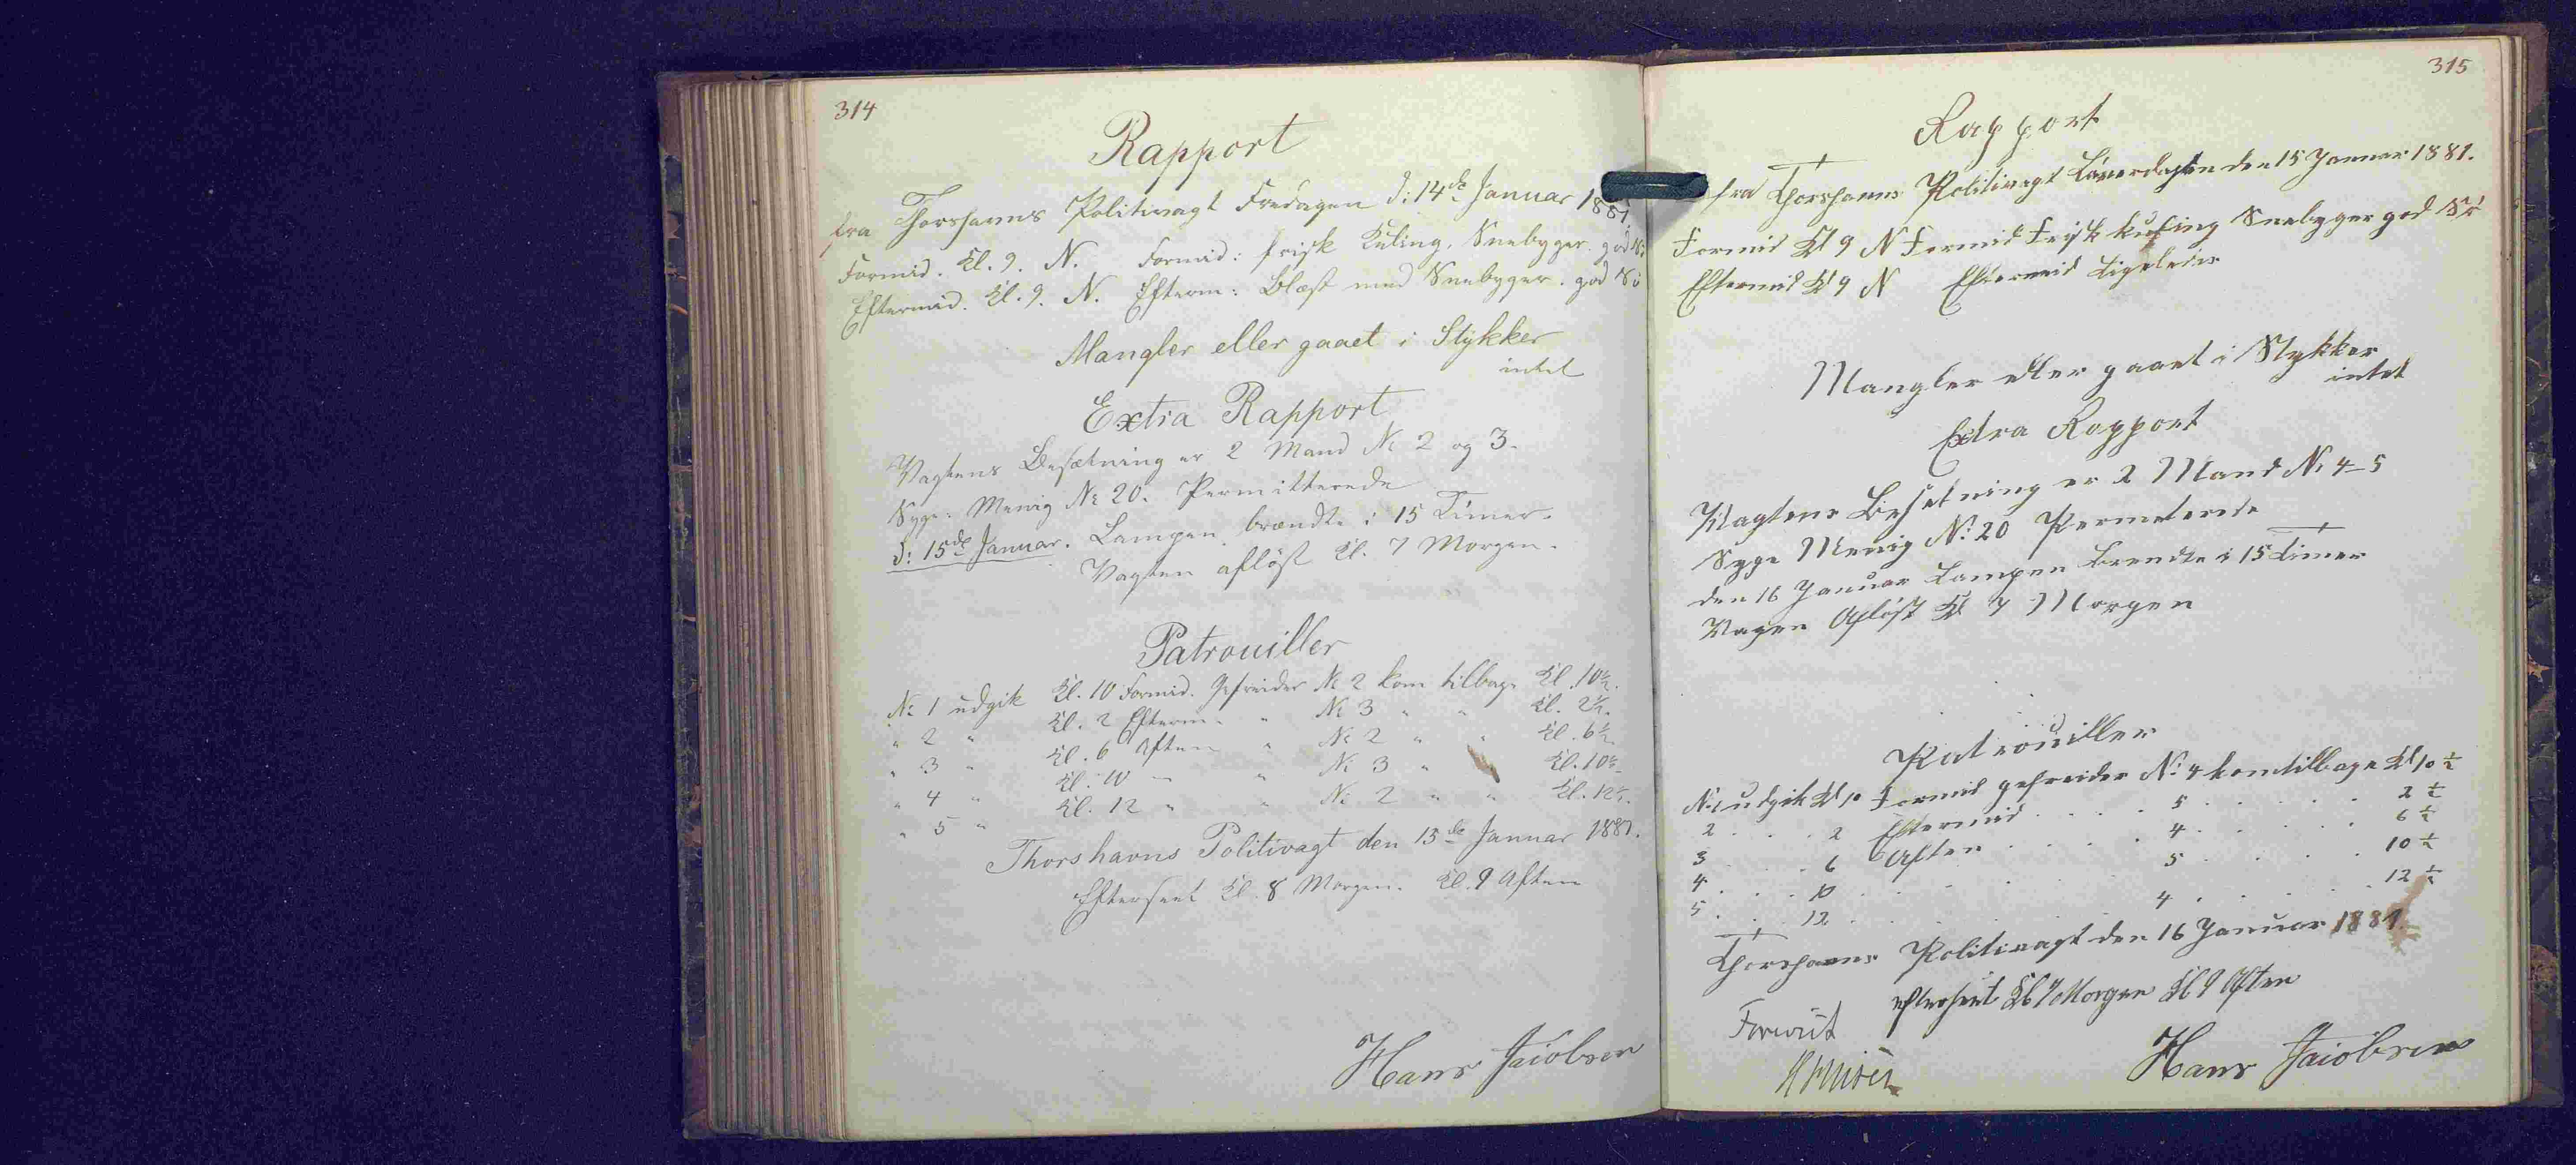 314
Rapport
fra Thorshavns Politivagt Fredagen d: 14de Januar 1881.
Formid. Kl. 9. N. Formid: frisk Kuling. Sneebyger. god Sö
Eftermid. Kl. 9. N. Efterm: Blæst med Sneebyger. god Sö
Mangler eller gaaet i Stykker
intet
Extra Rapport
Vagtens Besætning er 2 Mand No 2 og 3.
Syge: Menig No 20. Permitterede
d: 15de Januar. Lampen brændte i 15 Timer.
Vagten aflöst Kl. 7 Morgen.
Patrouiller
No 1 udgik Kl. 10 Formid. Gefreider No 2 kom tilbage Kl. 10½.
" 2 " Kl. 2 Efterm. " No 3 " " Kl. 2½.
" 3 " Kl. 6 Aften " No 2 " " Kl. 6½
" 4 " Kl. 10 " " No 3 " " Kl. 10½
" 5 " Kl. 12 " " No 2 " " Kl. 12½.
Thorshavns Politivagt den 15de Januar 1881.
Efterseet Kl. 8 Morgen. Kl. 9 Aften
Hans Jacobsen
315
Rapport
fra Thorshavns Politivagt Löverdagen den 15 Januar 1881.
Formid Kl 9 N Formid Frisk kuling Sneebyger god Sö
Eftermid Kl 9 N Eftermid Ligeledes
Mangler eller gaaet i Stykker
intet
Extra Rapport
Vagtens Besetning er 2 Mand No 4-5
Syge Menig No 20 Permeterede
den 16 Januar Lampen brendte i 15 Timer
Vagen Aflöst Kl 7 Morgen
Patrouiller
No 1 udgik Kl 10 Formid gefreider No 4 kom tilbage Kl 10½
2 . . . 2 Eftermid . . . . 5 . . . . . 2½
3 . . . 6 Aften . . . . 4 . . . . . 6½
4 . . . 10 . . . . . 5 . . . . . 10½
5 . . . 12 . . . . . 4 . . . . . 12½
Thorshavns Politivagt den 16 Januar 1881.
efterseet Kl 7 Morgen Kl 9 Aften
Foreviist
Hans Jacobsen